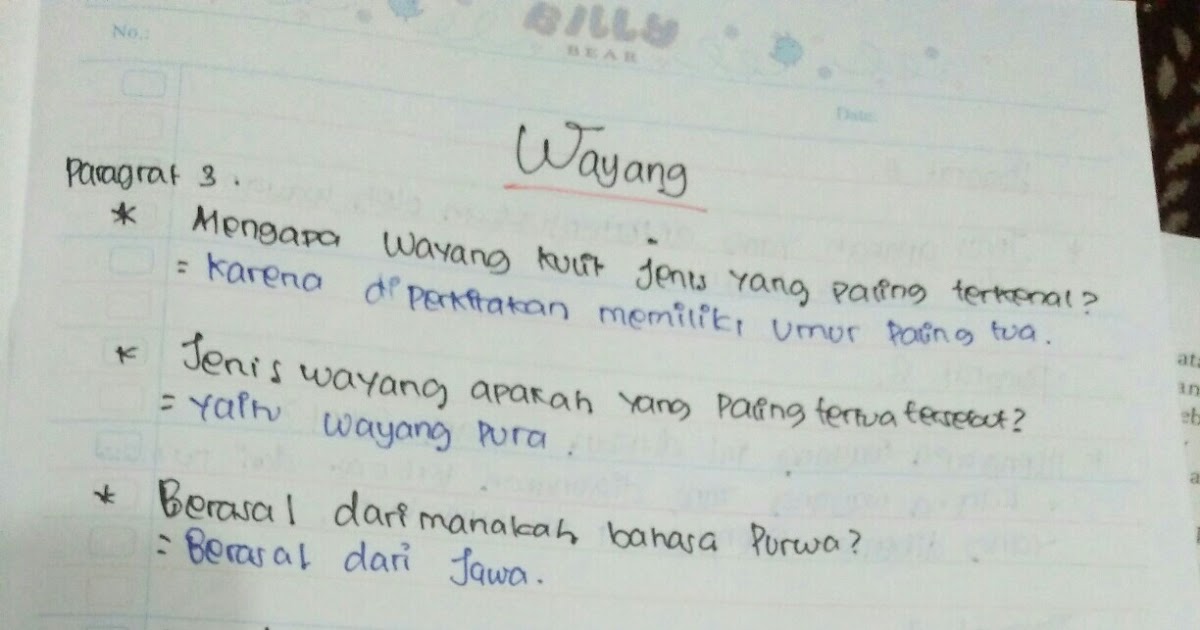 BILLY
BEAR
No.:
Date:
Wayang
Paragraf 3.
* Mengapa wayang kulit jenis yang paling terkenal?
= karena diperkirakan memiliki umur paling tua.
* Jenis wayang apakah yang paling tertua tersebut?
= yaitu wayang pura.
* Berasal dari manakah bahasa Purwa?
= Berasal dari Jawa.